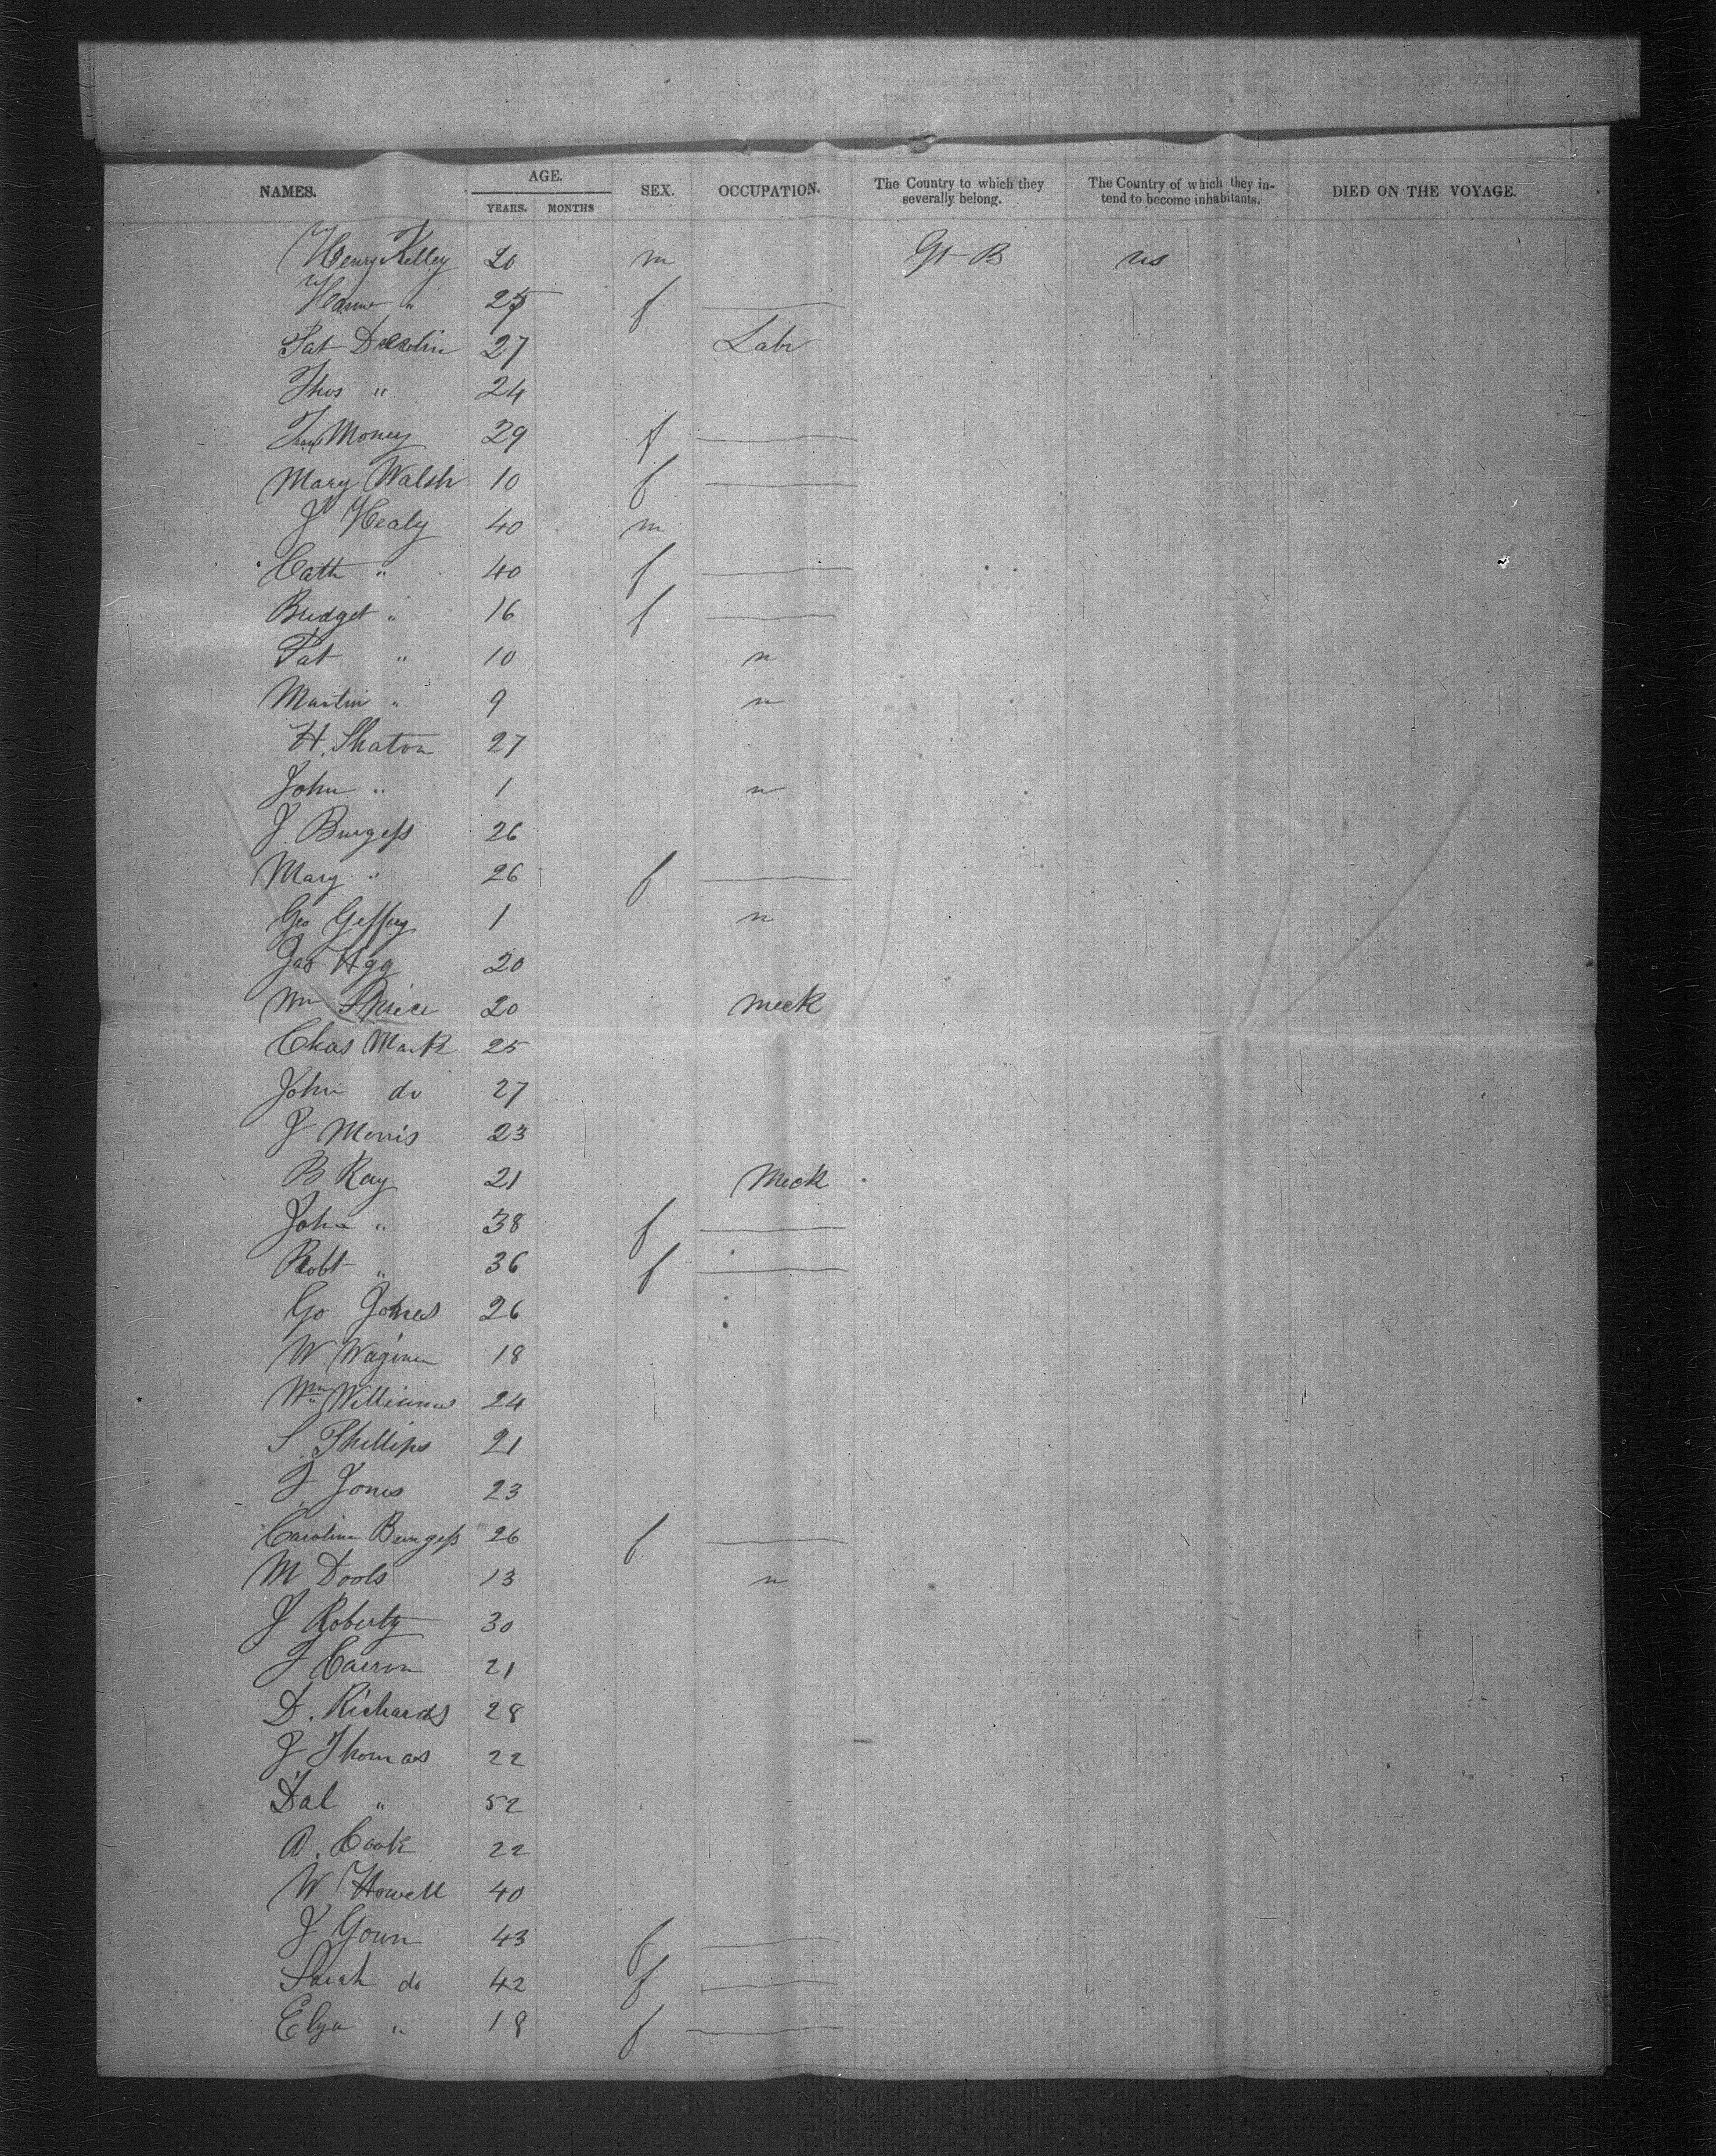 NAMES. AGE. SEX. OCCUPATION. The Country to which they severally belong. The Country of which they intend to become inhabitants. DIED ON THE VOYAGE.
YEARS. MONTHS
Henry Kelley 20 m Gt B us
" 25 f
Pat 27 Labr
Thos " 24
Money 29 f
Mary Walsh 10 f
J Healy 40 m
Cath " 40 f
Bridget " 16 f
Pat " 10 n
Martin " 9 n
H. Shaton 27
John " 1 n
J. Burgess 26
Mary " 26 f
Geo Geffrey 1 n
Jas 20
Wm 20 meck
Chas Mark 25
John do 27
J Morris 23
B Kay 21 Meck
John " 38 f
Robt " 36 f
Go Jones 26
W. Waginer 18
Wm Williams 24
S. Phillips 21
J. Jones 23
Caroline Burgess 26 f
M Dools 13 n
J Roberts 30
J Cairon 21
D. Richards 28
J Thomas 22
Dal " 52
A. Cook 22
W Howell 40
J Gown 43 f
Sarah do 42 f
Elya " 18 f